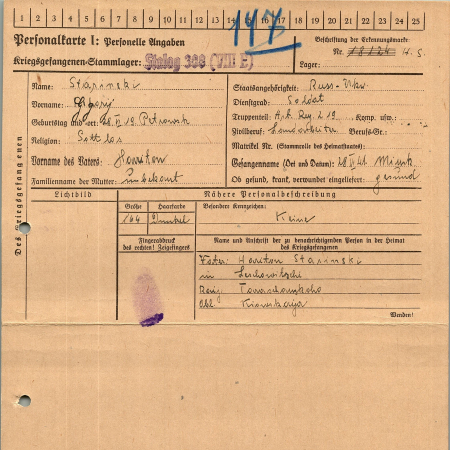 1 2 3 4 5 6 7 8 9 10 11 12 13 14 15 16 17 18 19 20 21 22 23 24 25
147
Personalkarte I: Personelle Angaben
Kriegsgefangenen-Stammlager: Stalag 308 (VIII E)
Beschriftung der Erkennungsmarke
Nr. 18124
Lager:
Des Kriegsgefangenen
Name: Starinski
Vorname: Grigorij
Geburtstag und -ort: 19 Petrowsk
Religion: Gottlos
Vorname des Vaters: Hariton
Familienname der Mutter: unbekannt
Staatsangehörigkeit: Russ-Ukr.
Dienstgrad: Soldat
Truppenteil: Art. Rg. 219 Komp. usw.:
Zivilberuf: Landarbeiter Berufs-Gr.:
Matrikel Nr. (Stammrolle des Heimatstaates):
Gefangennahme (Ort und Datum): 41 Minsk
Ob gesund, krank, verwundet eingeliefert: gesund
Lichtbild
Nähere Personalbeschreibung
Größe
Haarfarbe
164
Dunkel
Besondere Kennzeichen:
Keine
Fingerabdruck
des rechten! Zeigefingers
Name und Anschrift der zu benachrichtigenden Person in der Heimat
des Kriegsgefangenen
Vater: Hariton Starinski
in
Obl.
Wenden!